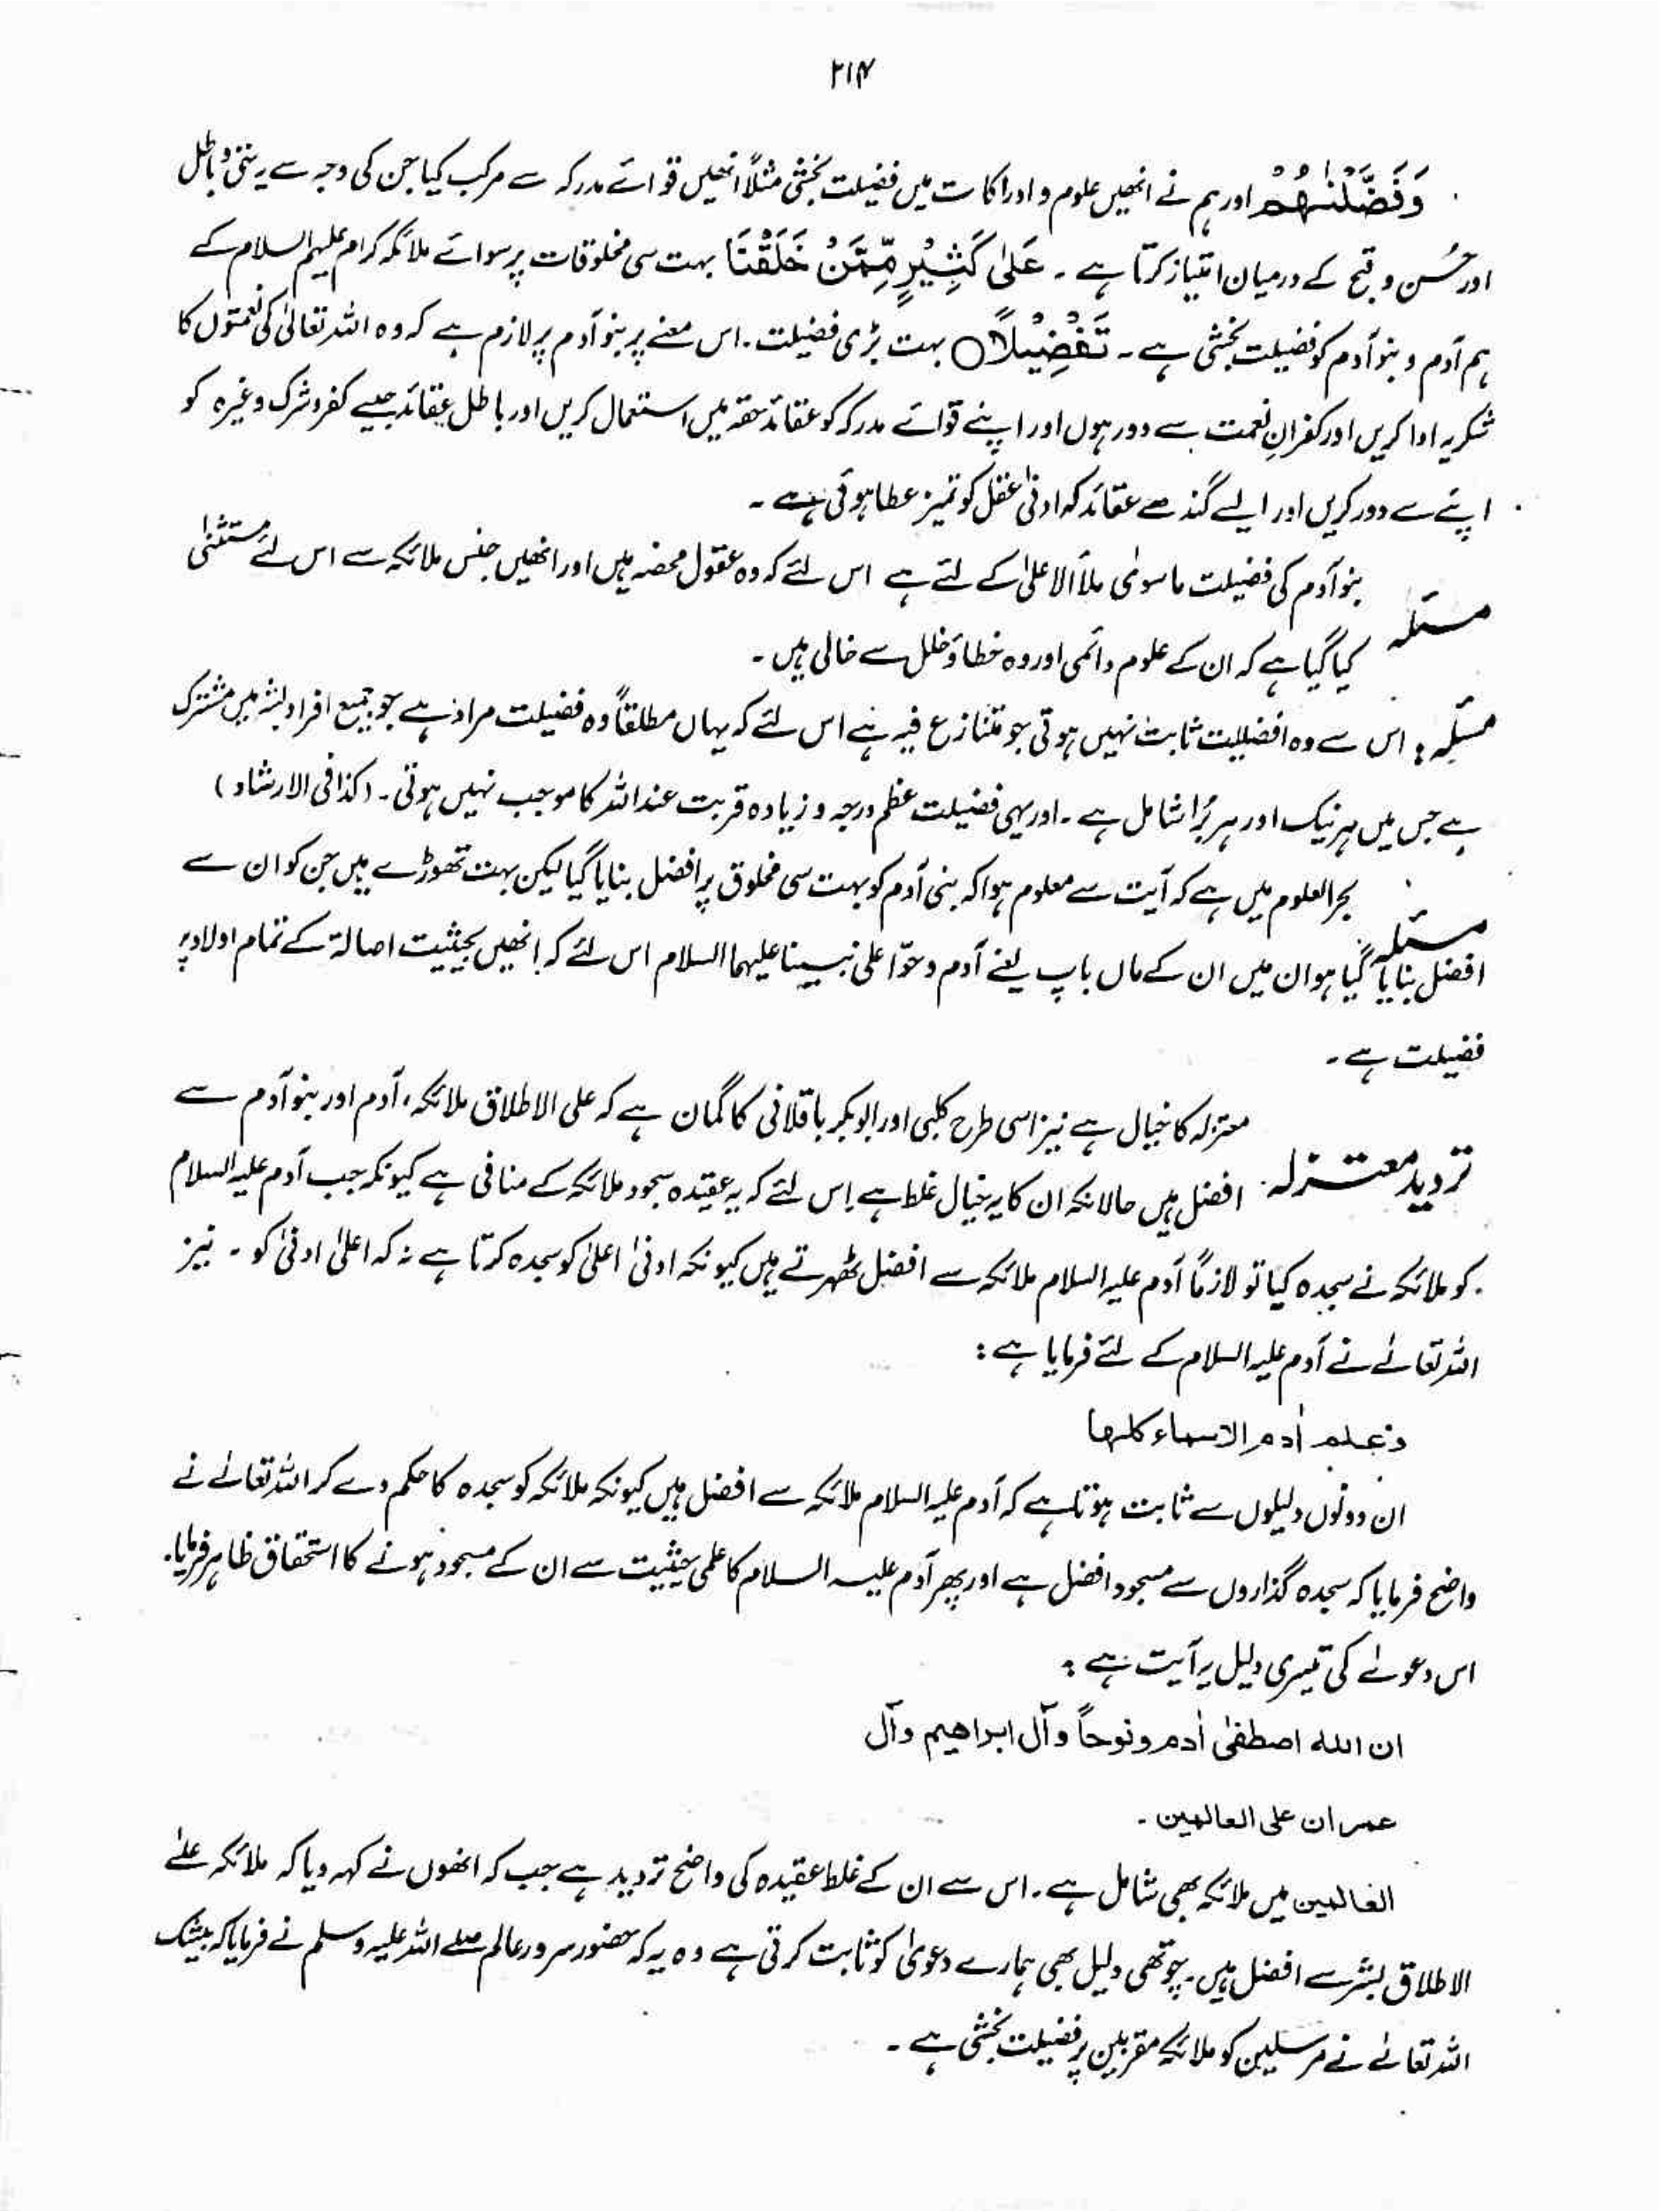 ۲۱۴
وَفَضَّلْنٰهُمْ اور ہم نے انھیں علوم و ادراکات میں فضیلت بخشی مثلاً انھیں قوائے مدرکہ سے مرکب کیا جن کی وجہ سے یہ حق و باطل
اور حُسن و قبح کے درمیان امتیاز کرتا ہے ۔ عَلٰی کَثِیْرٍ مِّمَّنْ خَلَقْنَا بہت سی مخلوقات پر سوائے ملائکہ کرام علیہم السلام کے
ہم آدم و بنو آدم کو فضیلت بخشی ہے ۔ تَفْضِیْلًا ○ بہت بڑی فضیلت ۔ اس معنے پر بنو آدم پر لازم ہے کہ وہ اللہ تعالیٰ کی نعمتوں کا
شکریہ ادا کریں اور کفرانِ نعمت سے دور ہوں اور اپنے قوائے مدرکہ کو عقائد حقہ میں استعمال کریں اور باطل عقائد جیسے کفر و شرک وغیرہ کو
اپنے سے دور کریں اور ایسے گندے عقائد کہ ادنیٰ عقل کو تمیز عطا ہوئی ہے ۔
بنو آدم کی فضیلت ماسوٰی ملأ الاعلیٰ کے لئے ہے اس لئے کہ وہ عقول محضہ ہیں اور انھیں جنس ملائکہ سے اس لئے مستثنٰی
مسئلہ کیا گیا ہے کہ ان کے علوم دائمی اور وہ خطاؤ خلل سے خالی ہیں ۔
مسئلہ : اس سے وہ افضلیت ثابت نہیں ہوتی جو متنازع فیہ ہے اس لئے کہ یہاں مطلقاً وہ فضیلت مراد ہے جو جمیع افراد بشر میں مشترک
ہے جس میں ہر نیک اور ہر بُرا شامل ہے ۔ اور یہی فضیلت عظم درجہ و زیادہ قربت عند اللہ کا موجب نہیں ہوتی ۔ (کذا فی الارشاد)
بحر العلوم میں ہے کہ آیت سے معلوم ہوا کہ بنی آدم کو بہت سی مخلوق پر افضل بنایا گیا لیکن بہت تھوڑے ہیں جن کو ان سے
مسئلہ افضل بنایا گیا ہو ان میں ان کے ماں باپ یعنے آدم و حوّا علی نبینا علیہما السلام اس لئے کہ انھیں بحیثیت اصالۃ کے تمام اولاد پر
فضیلت ہے ۔
معتزلہ کا خیال ہے نیز اسی طرح کلبی اور ابوبکر باقلانی کا گمان ہے کہ علی الاطلاق ملائکہ ، آدم اور بنو آدم سے
تردید معتزلہ افضل ہیں حالانکہ ان کا یہ خیال غلط ہے اس لئے کہ یہ عقیدہ سجود ملائکہ کے منافی ہے کیونکہ جب آدم علیہ السلام
کو ملائکہ نے سجدہ کیا تو لازماً آدم علیہ السلام ملائکہ سے افضل ٹھہرتے ہیں کیونکہ ادنیٰ اعلیٰ کو سجدہ کرتا ہے نہ کہ اعلیٰ ادنیٰ کو ۔ نیز
اللہ تعالےٰ نے آدم علیہ السلام کے لئے فرمایا ہے :
وعلم اٰدم الاسماء کلھا
ان دونوں دلیلوں سے ثابت ہوتا ہے کہ آدم علیہ السلام ملائکہ سے افضل ہیں کیونکہ ملائکہ کو سجدہ کا حکم دے کر اللہ تعالےٰ نے
واضح فرمایا کہ سجدہ گذاروں سے مسجود افضل ہے اور پھر آدم علیہ السلام کا علمی حیثیت سے ان کے مسجود ہونے کا استحقاق ظاہر فرمایا۔
اس دعوے کی تیسری دلیل یہ آیت ہے :
ان اللہ اصطفیٰ اٰدم و نوحاً و آل ابراھیم و آل
عمران علی العالمین ۔
العالمین میں ملائکہ بھی شامل ہے ۔ اس سے ان کے غلط عقیدہ کی واضح تردید ہے جب کہ انھوں نے کہہ دیا کہ ملائکہ علے
الاطلاق بشر سے افضل ہیں ۔ چوتھی دلیل بھی ہمارے دعویٰ کو ثابت کرتی ہے وہ یہ کہ حضور سرور عالم صلے اللہ علیہ وسلم نے فرمایا کہ بیشک
اللہ تعالےٰ نے مرسلین کو ملائکہ مقربین پر فضیلت بخشی ہے ۔